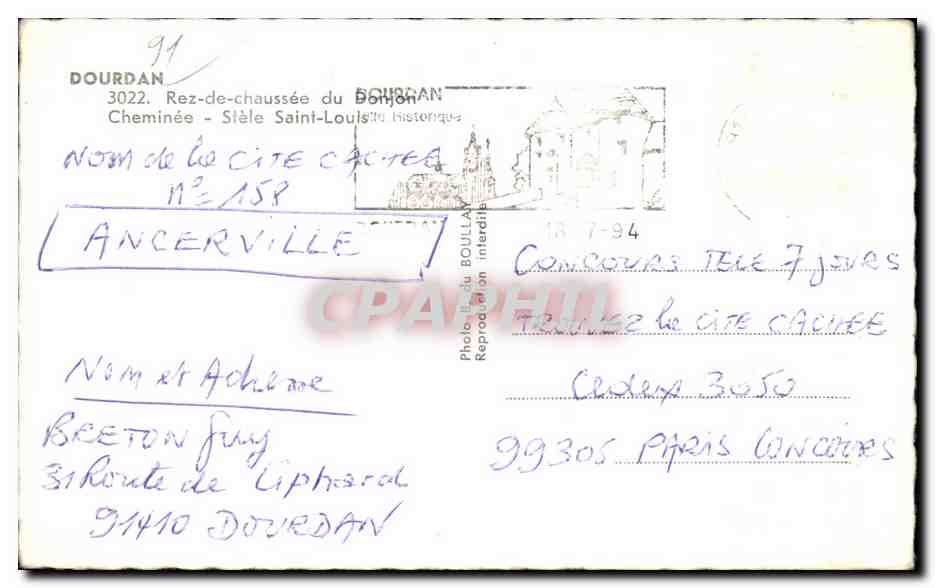 91
DOURDAN
3022. Rez-de-chaussée du Donjon
Cheminée - Stèle Saint-Louis
DOURDAN
Historique
DOURDAN
18-7-94
Nom de la CITE CACHEE
N°= 158
ANCERVILLE
Nom et Adresse
BRETON Guy
31 Route de Liphard
91410 DOURDAN
Photo B. du BOULLAY
Reproduction interdite
CPAPHIL
CONCOURS TELE 7 JOURS
TROUVEZ la CITE CACHEE
Cedex 3050
99305 PARIS CONCOURS